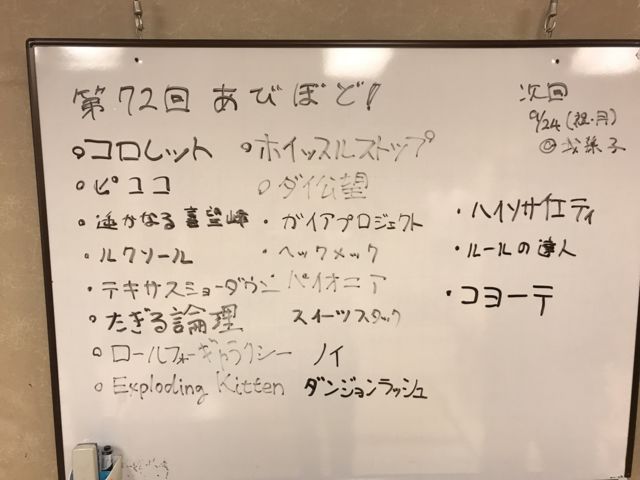 第72回 あびぼど!
次回
9/24(祝・月)
◎我孫子
○コロレット
○ピココ
・遥かなる喜望峰
・ルクソール
・テキサスショーダウン
○たぎる論理
○ロールフォーギャラクシー
○Exploding Kitten
○ホイッスルストップ
○ダイ公望
・ガイアプロジェクト
・ヘックメック
パイオニア
スイーツスタック
ノイ
ダンジョンラッシュ
・ハイソサイエティ
・ルールの達人
・コヨーテ